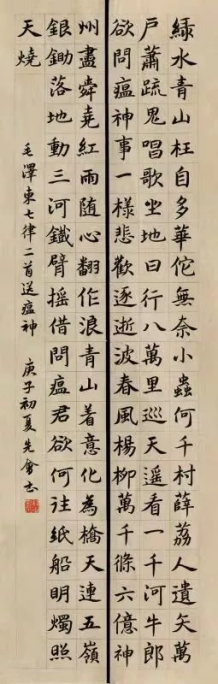 綠水青山枉自多華佗無奈小蟲何千村薜荔人遺矢萬
戶蕭疏鬼唱歌坐地日行八萬里巡天遙看一千河牛郎
欲問瘟神事一樣悲歡逐逝波春風楊柳萬千條六億神
州盡舜堯紅雨隨心翻作浪青山着意化為橋天連五嶺
銀鋤落地動三河鐵臂搖借問瘟君欲何往紙船明燭照
天燒
毛澤東七律二首送瘟神 庚子初夏先會书